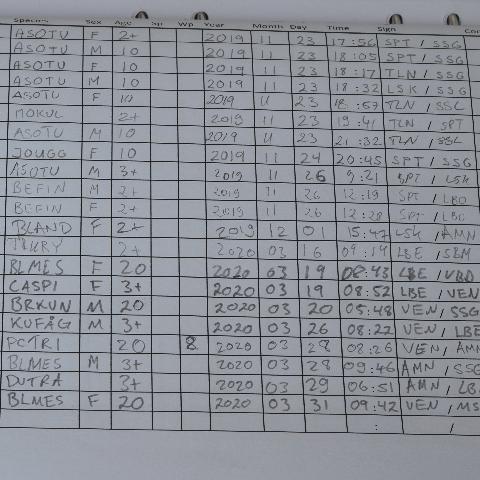 Species Sex Age Wp Year Month Day Time Sign
ASOTU F 2+ 2019 11 23 17:56 SPT / SSG
ASOTU M 10 2019 11 23 18:05 SPT / SSG
ASOTU F 10 2019 11 23 18:17 TLN / SSG
ASOTU M 10 2019 11 23 18:32 LSK / SSG
ASOTU F 10 2019 11 23 18:57 TLN / SSG
MOKUL 2+ 2019 11 23 19:41 TLN / SPT
ASOTU M 10 2019 11 23 21:32 TLN / SSG
JOUGG F 10 2019 11 24 20:45 SPT / SSG
ASOTU M 3+ 2019 11 26 9:21 SPT / LSK
BEFIN M 2+ 2019 11 26 12:19 SPT / LBO
BEFIN F 2+ 2019 11 26 12:28 SPT / LBO
BLAND F 2+ 2019 12 01 15:47 LSK / AMN
2+ 2020 03 16 09:14 LBE / SBM
BLMES F 20 2020 03 19 08:43 LBE / VBD
CASPI F 3+ 2020 03 19 08:52 LBE / VEN
BRKUN M 20 2020 03 20 05:48 VEN / SSG
KUFÅG M 3+ 2020 03 26 08:22 VEN / LBE
PCTRI 20 8 2020 03 28 08:26 VEN / AMN
BLMES M 3+ 2020 03 28 09:46 AMN / SSG
DUTRA 3+ 2020 03 29 06:51 AMN / LB
BLMES F 20 2020 03 31 09:42 VEN / MS
: /